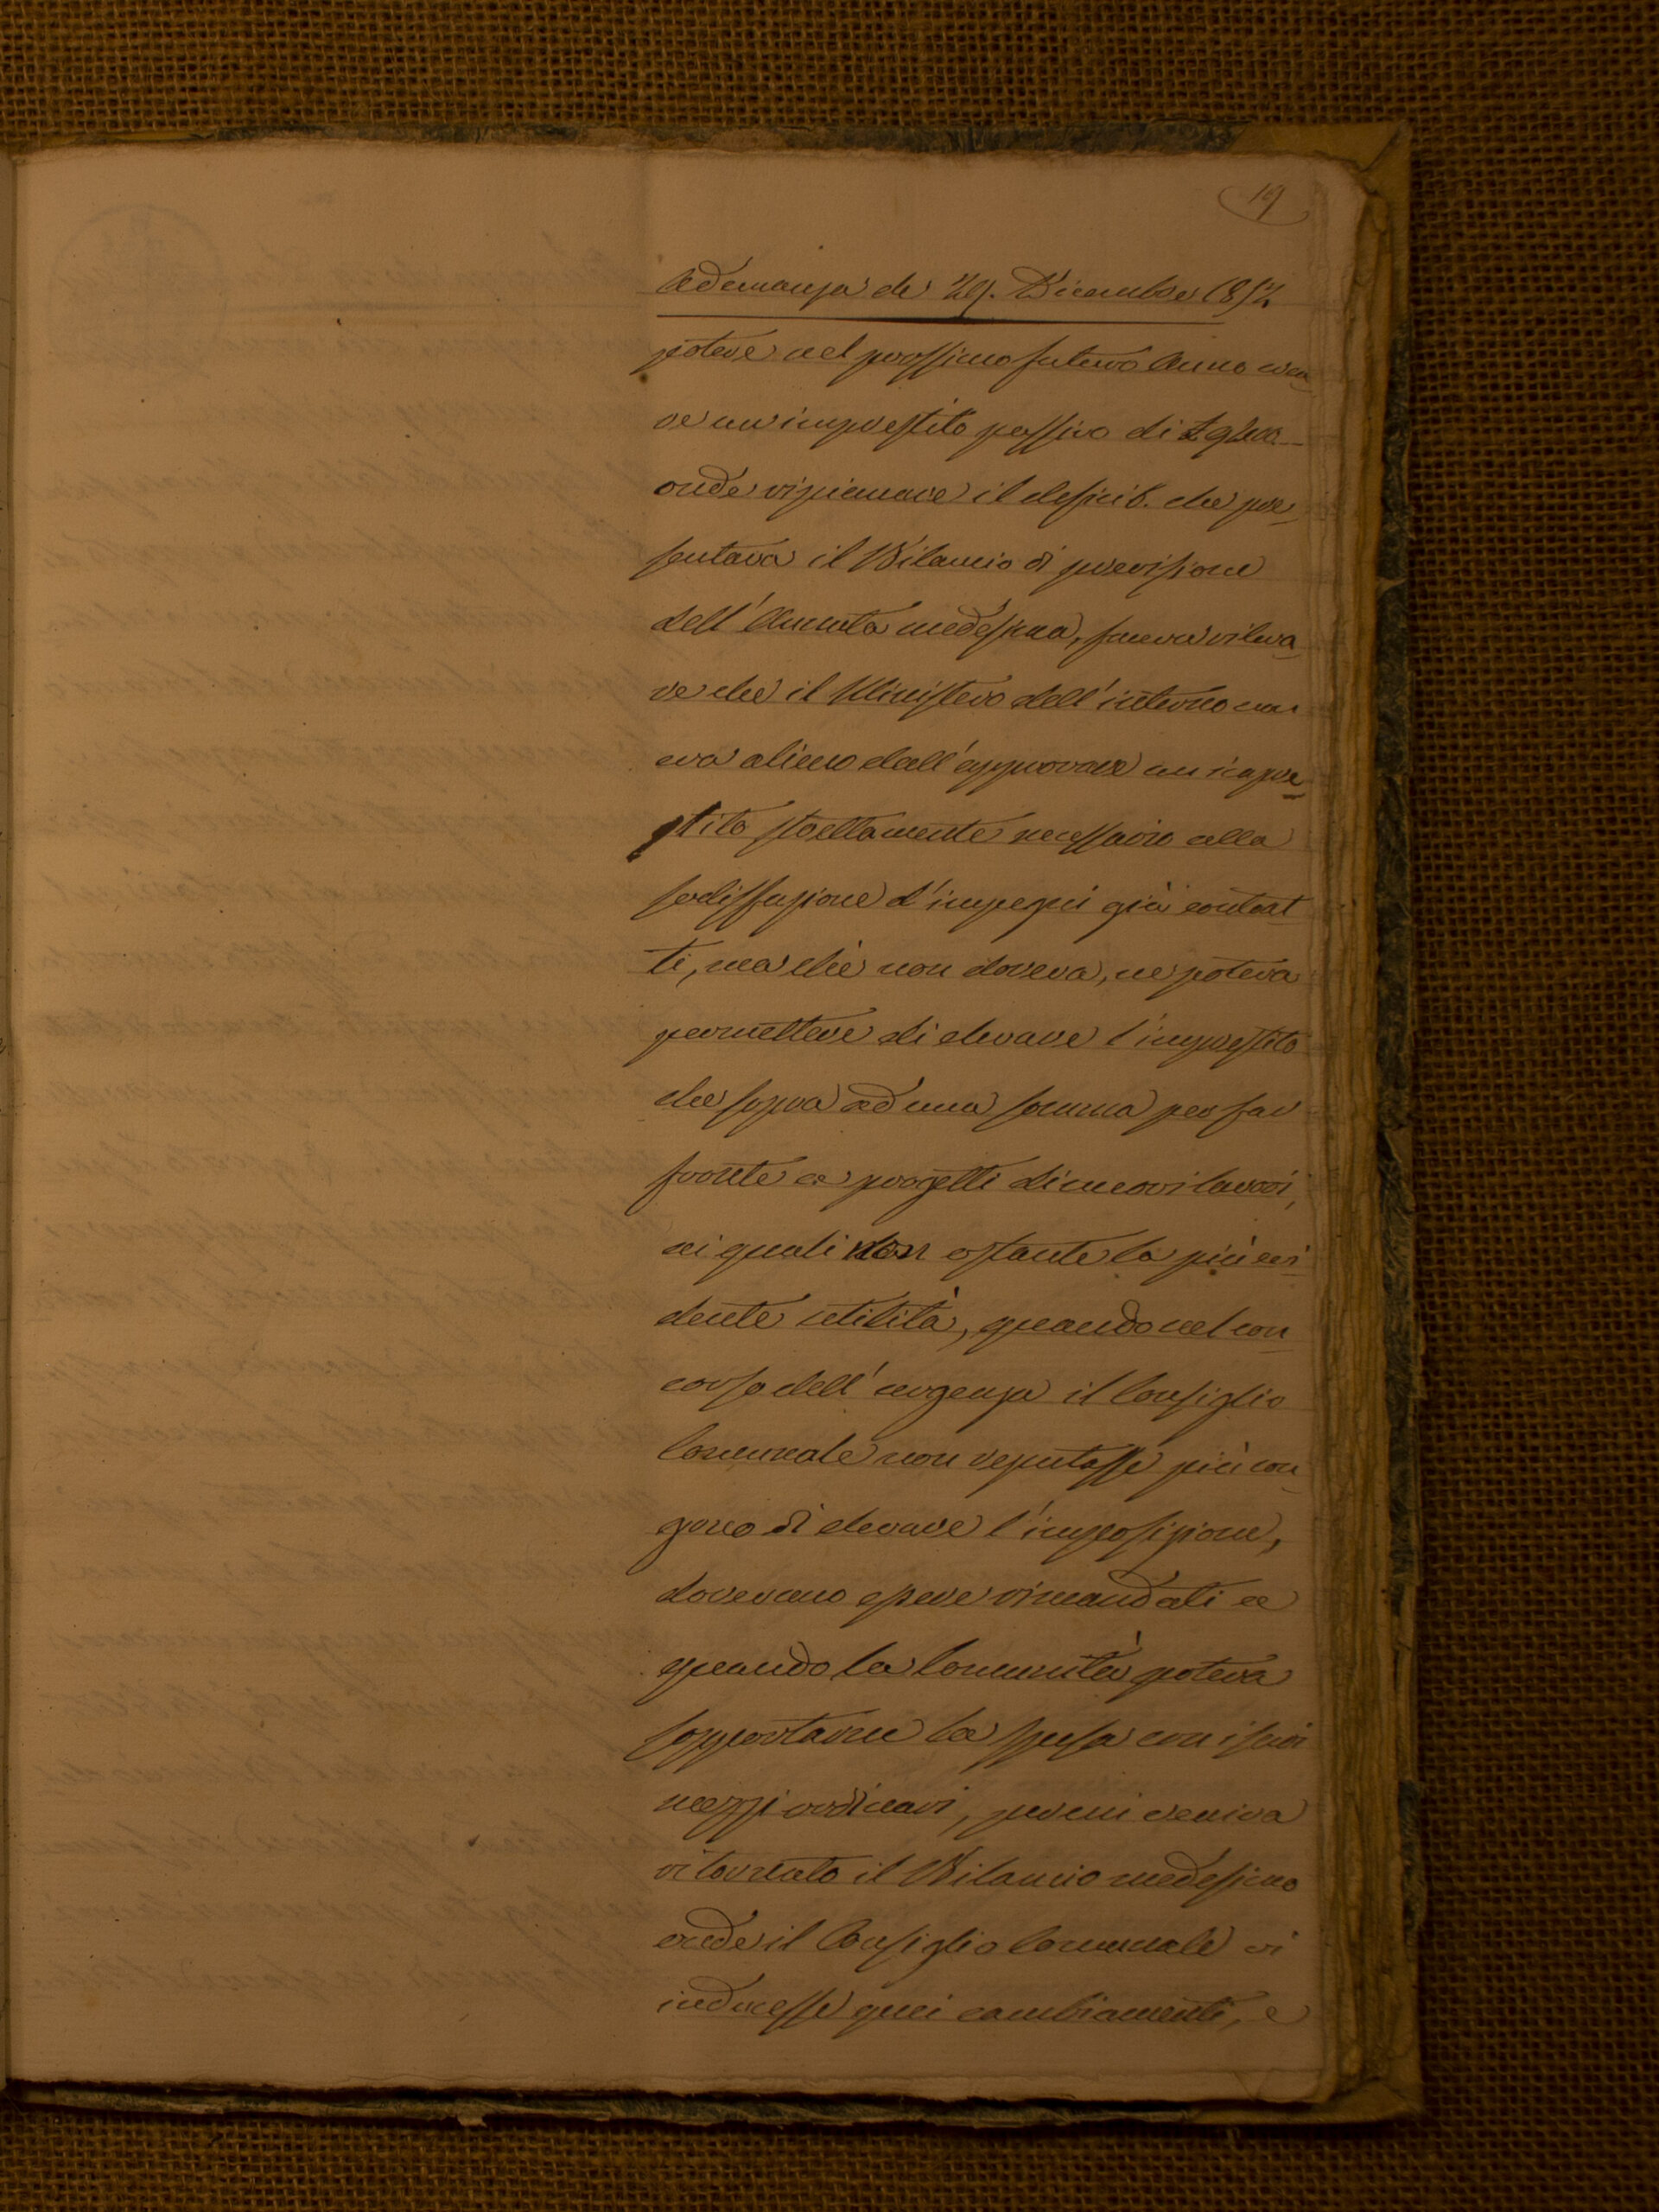 19
Adunanza de' 29. Dicembre 1852
potere nel prossimo futuro Anno crea
re un imprestito passivo di
onde ripianare il deficit. che pre
sentava il Bilancio di previsione
dell'Annata medesima, faceva rileva
re che il Ministero dell'interno non
era alieno dall'approvare un impre
stito strettamente necessario alla
sodisfazione d'impegni già contrat
ti, ma che non doveva, ne poteva
permettere di elevare l'imprestito
che sopra ad una somma per far
fronte a progetti di nuovi lavori,
ai quali non ostante la più evi
dente utilità, quando nel con
corso dell'urgenza il Consiglio
Comunale non reputasse più con
gruo di elevare l'imposizione,
dovevano essere rimandati a
quando la Comunità poteva
sopportarne la spesa con i suoi
mezzi ordinari, per cui veniva
ritornato il Bilancio medesimo
onde il Consiglio Comunale vi
inducesse quei cambiamenti, e